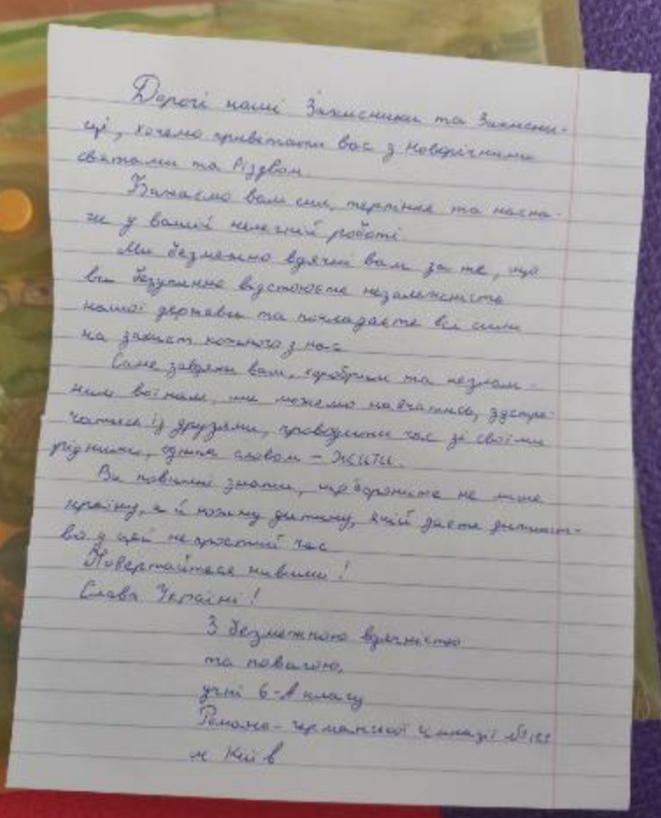 Дорогі наші Захисники та Захисни-
ці, хочемо привітати вас з Новорічними
святами та Різдвом.
Бажаємо вам сил, терпіння та насна-
ги у вашій нелегкій роботі
Ми безмежно вдячні вам за те, що
ви безупинно відстоюєте незалежність
нашої держави та покладаєте всі сили
на захист кожного з нас
Саме завдяки вам, хоробрим та незлам-
ним воїнам, ми можемо навчатись, зустрі-
чатись із друзями, проводити час зі своїми
рідними, одним словом – ЖИТИ.
Ви повинні знати, що бороните не лише
країну, а й кожну дитину, якій даєте дитинст-
во у цей непростий час
Повертайтеся живими!
Слава Україні!
З безмежною вдячністю
та повагою,
учні 6-А класу
Романо-германської гімназії №
м Київ